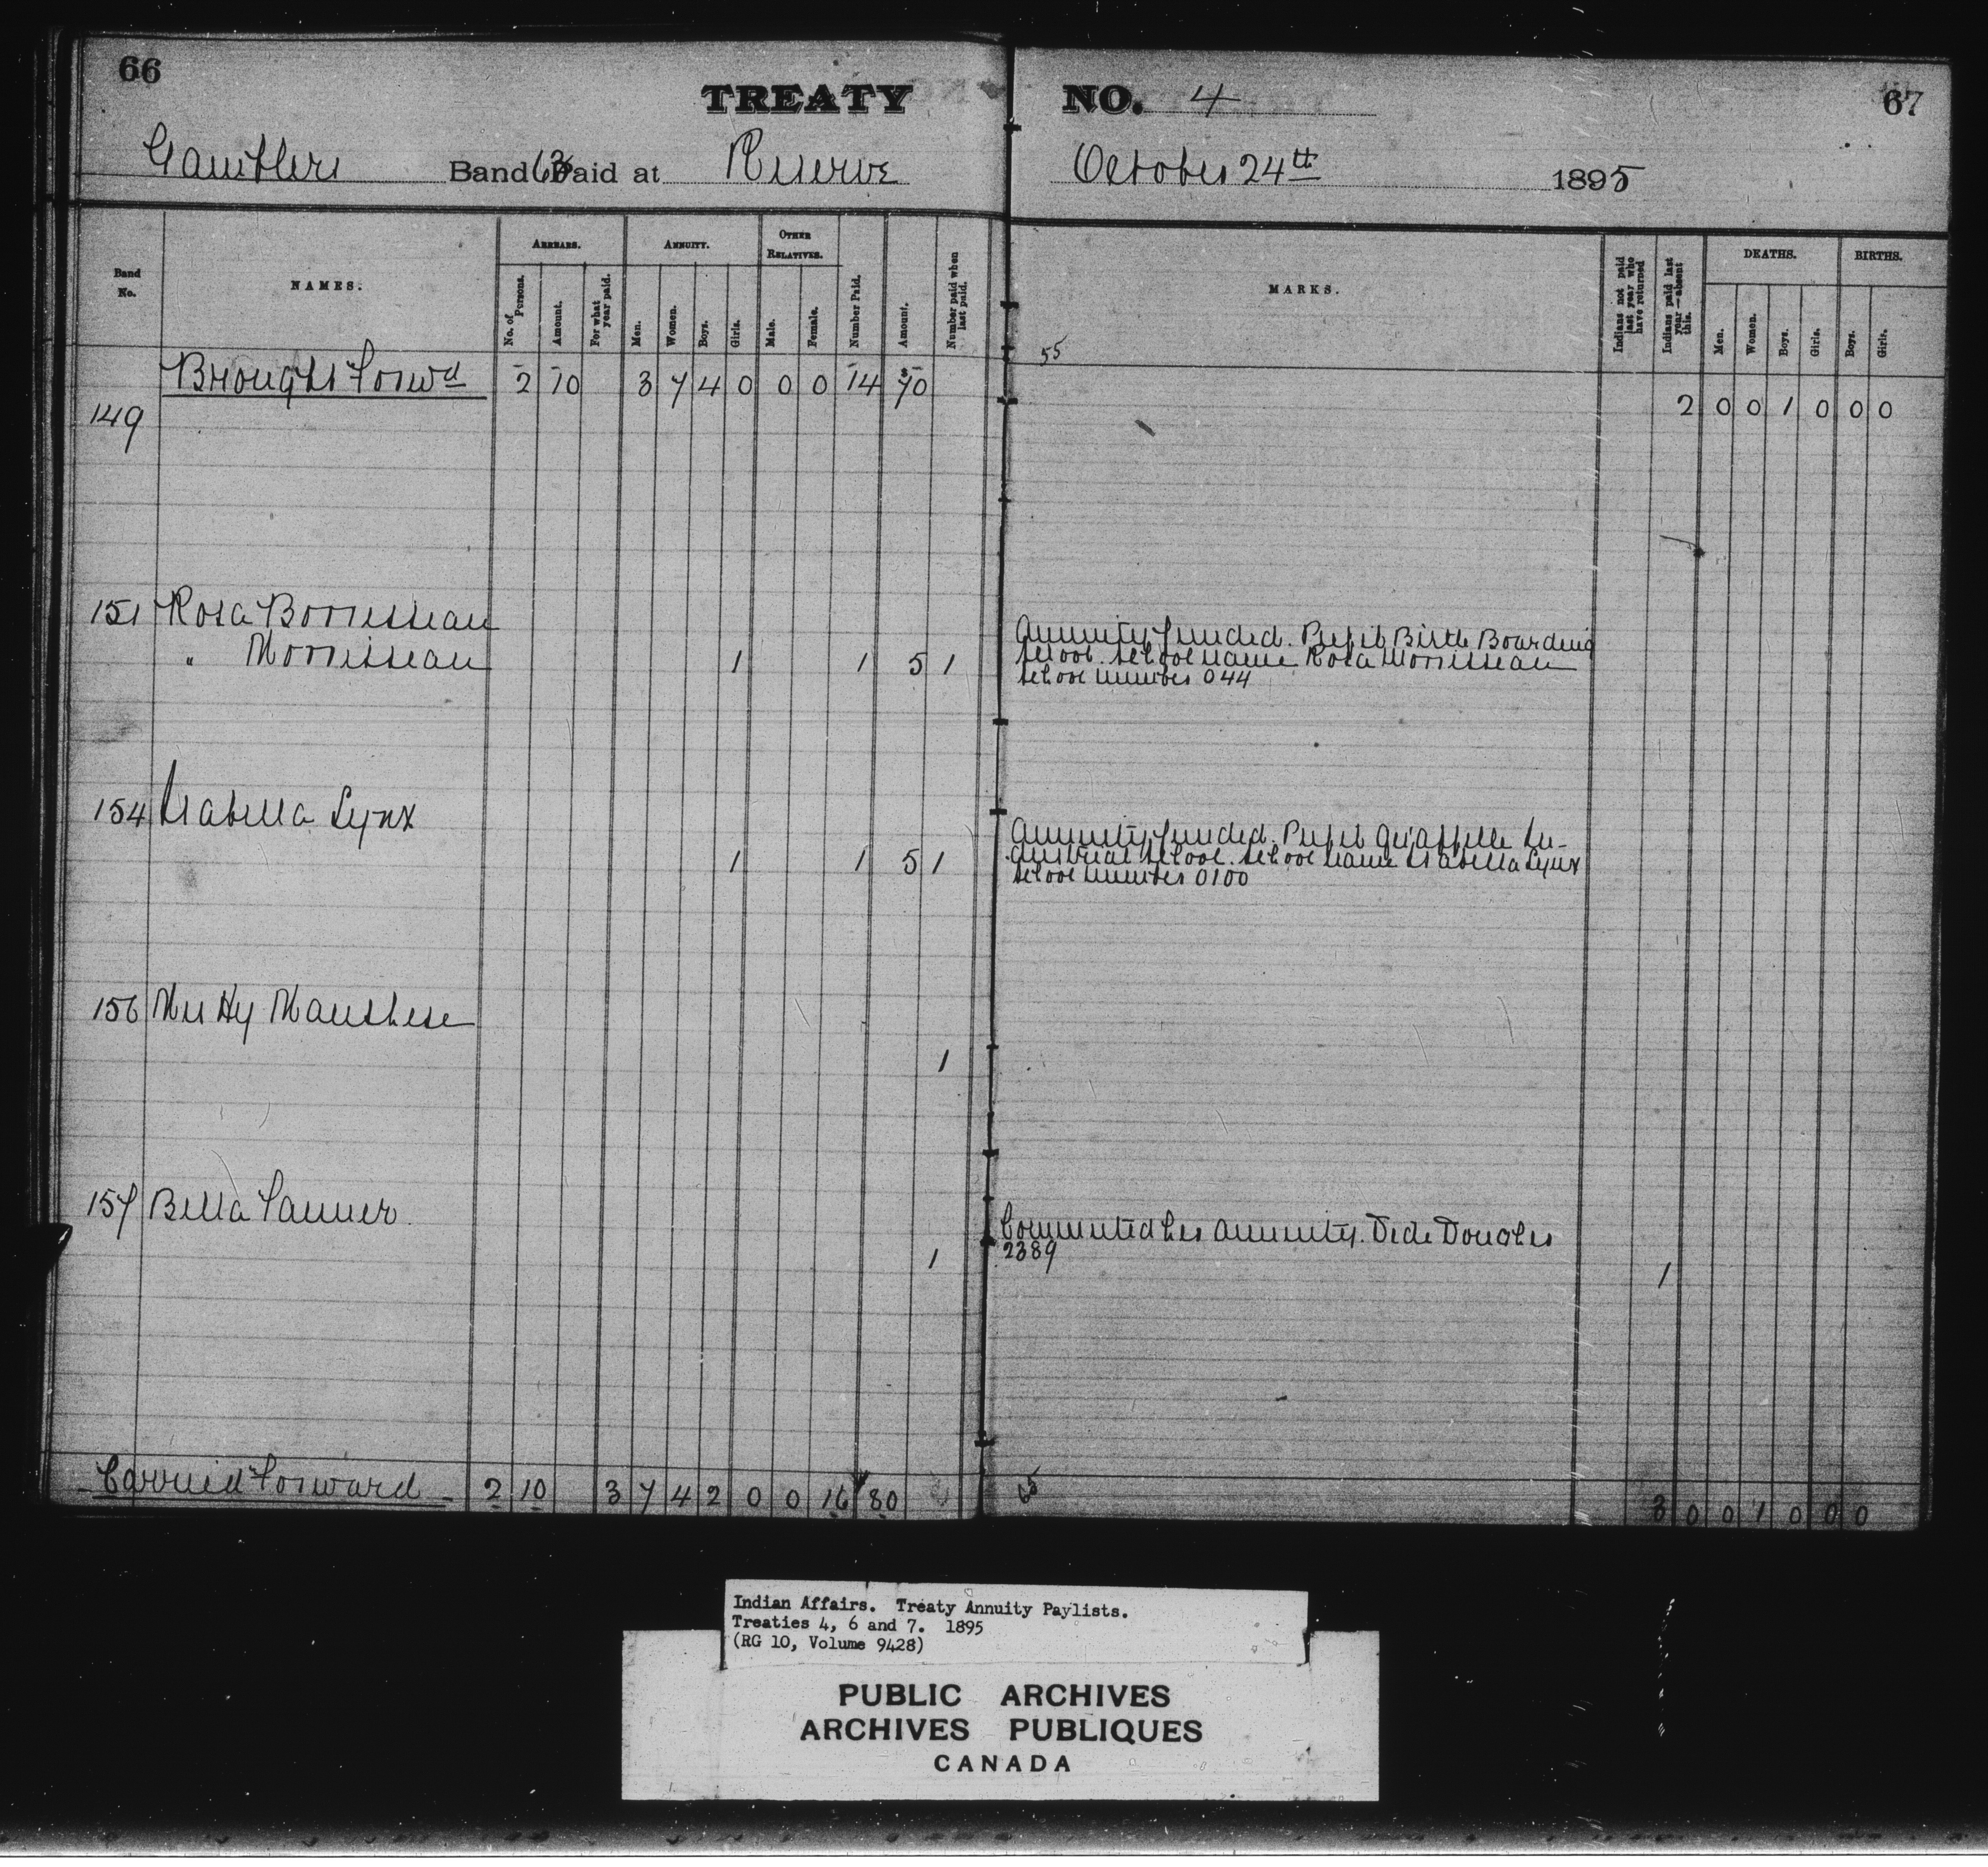 66
TREATY NO. 4
67
Gamblers Band 63 Paid at Reserve October 24th 1895
Band No.
NAMES.
ARREARS.
No. of Persons.
Amount.
For what year paid.
ANNUITY.
Men.
Women.
Boys.
Girls.
OTHER RELATIVES.
Male.
Female.
Number Paid.
Amount.
Number paid when last paid.
MARKS.
Indians not paid last year who have returned
Indians paid last year—absent this.
DEATHS.
Men.
Women.
Boys.
Girls.
BIRTHS.
Boys.
Girls.
55
Brought Forwd 2 10 3 7 4 0 0 0 14 70 2 0 0 1 0 0 0
149
151 Rosa Borrisseau
" Morrisseau 1 1 5 1
Annuity funded. Pupil Birtle Boarding
School. School name Rosa Morrisseau
School number 044
154 Isabella Lynx
1 1 5 1
Annuity funded. Pupil Qu'appelle In-
dustrial School. School name Isabella Lynx
School number 0100
156 Mrs Hy Manshese
1
157 Bella Tanner.
1
Commuted her annuity. Vide Voucher
2389
1
Carried Forward 2 10 3 7 4 2 0 0 16 80 3 0 0 1 0 0 0
65
Indian Affairs. Treaty Annuity Paylists.
Treaties 4, 6 and 7. 1895
(RG 10, Volume 9428)
PUBLIC ARCHIVES
ARCHIVES PUBLIQUES
CANADA